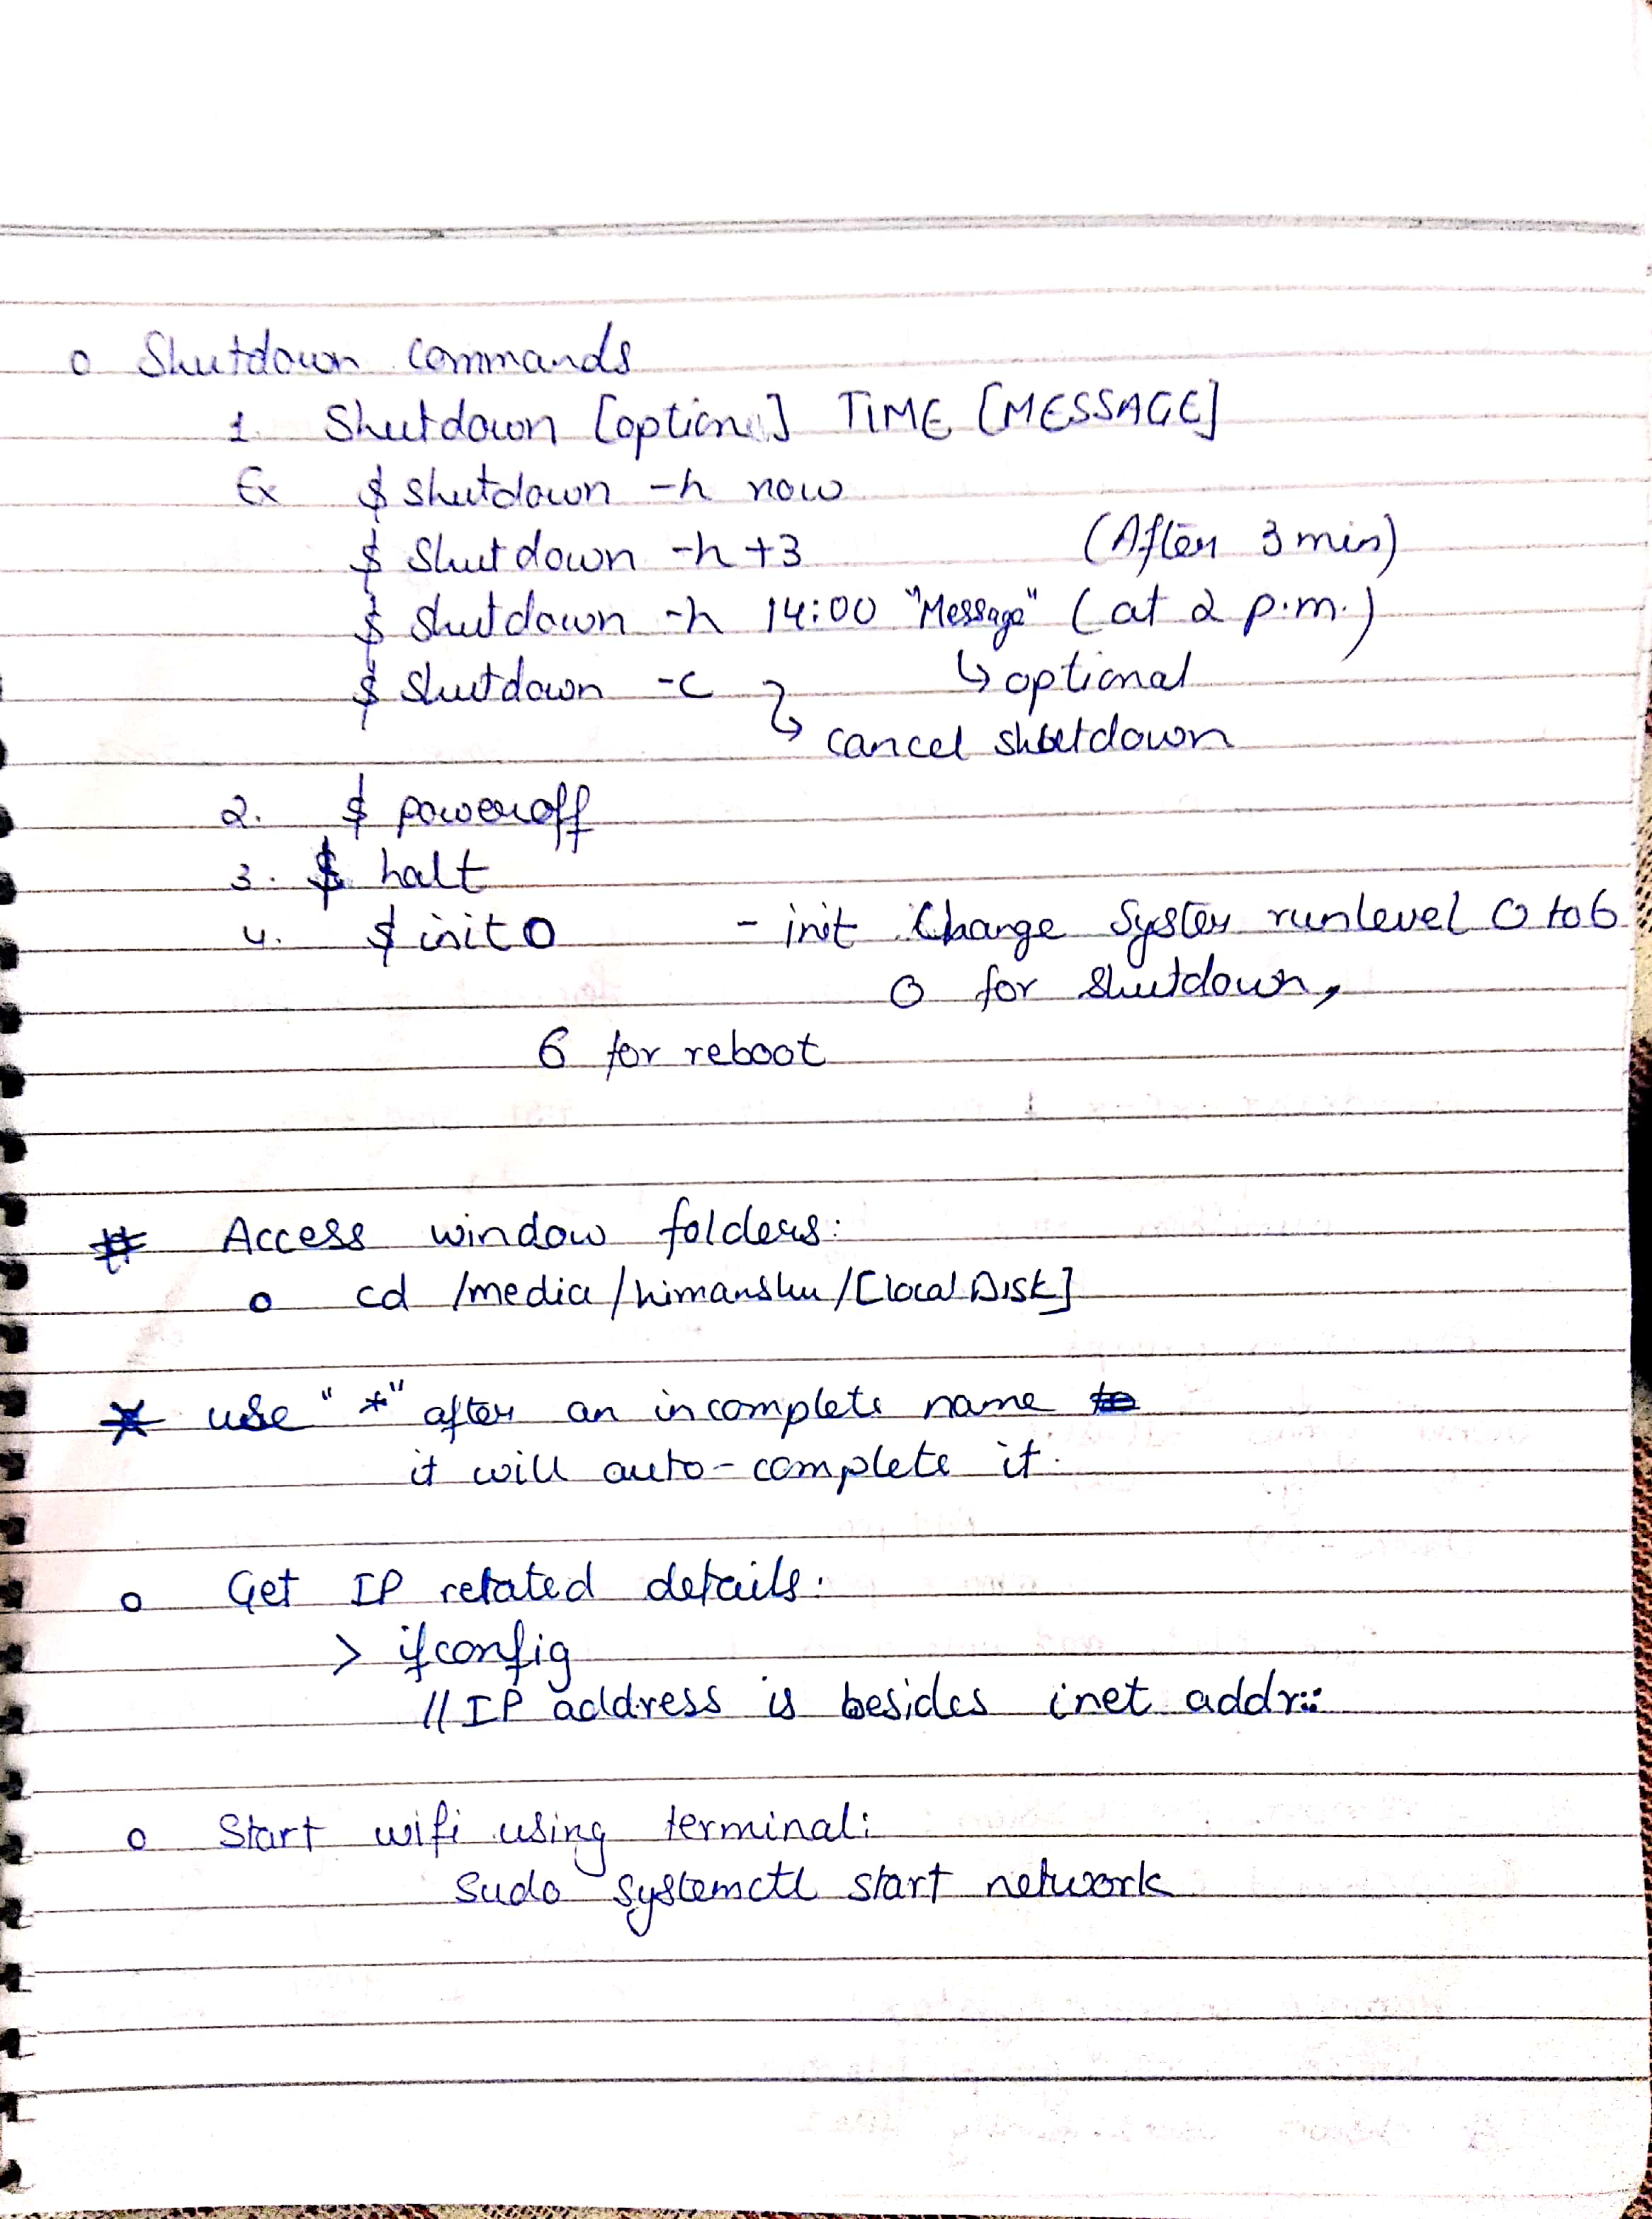 o Shutdown commands
1. Shutdown [option] TIME [MESSAGE]
Ex $ shutdown -h now
$ Shutdown -h +3 (After 3 min)
$ shutdown -h 14:00 "Message" (at 2 p.m.)
$ shutdown -c ↳ optional
↳ cancel shutdown
2. $ poweroff
3. $ halt
4. $ init 0 - init Change System runlevel 0 to 6
0 for shutdown,
6 for reboot
# Access window folders:
o cd /media/himanshu/[Local Disk]
* use "*" after an incomplete name
it will auto-complete it.
o Get IP related details:
> ifconfig
// IP address is besides inet addr::
o Start wifi using terminal:
sudo systemctl start network